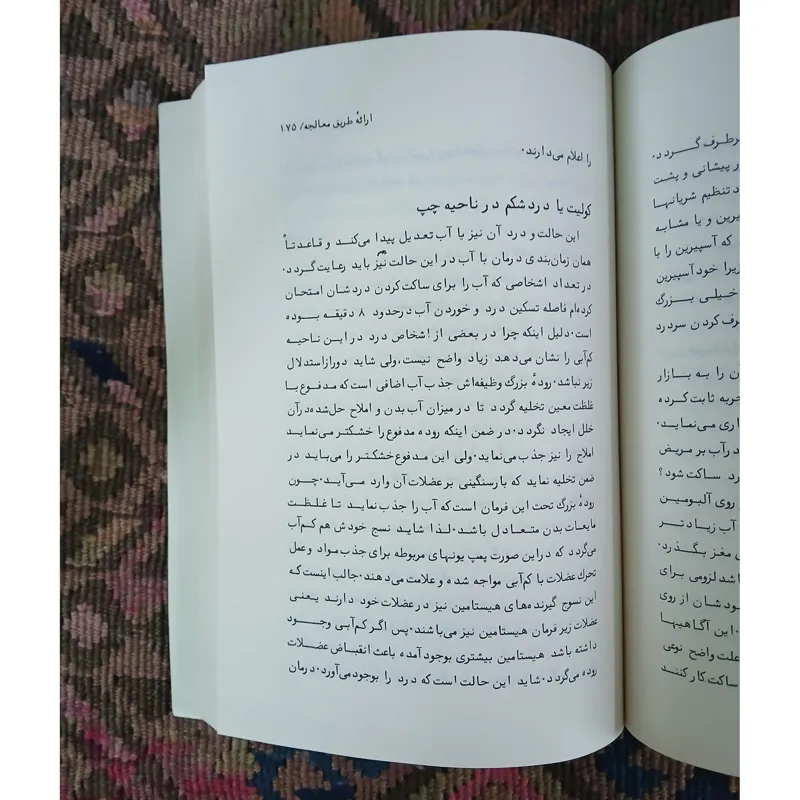 ارائهٔ طریق معالجه/ ۱۷۵
را اعلام می‌دارند.
کولیت یا درد شکم در ناحیه چپ
این حالت و درد آن نیز با آب تعدیل پیدا می‌کند و قاعدتاً
همان زمان‌بندی درمان با آب در این حالت نیز باید رعایت گردد.
در تعداد اشخاصی که آب را برای ساکت کردن دردشان امتحان
کرده‌ام فاصله تسکین درد و خوردن آب درحدود ۸ دقیقه بوده
است. دلیل اینکه چرا در بعضی از اشخاص درد در این ناحیه
کم‌آبی را نشان می‌دهد زیاد واضح نیست، ولی شاید دورازاستدلال
زیر نباشد. رودهٔ بزرگ وظیفه‌اش جذب آب اضافی است که مدفوع با
غلظت معین تخلیه گردد تا در میزان آب بدن و املاح حل‌شده درآن
خلل ایجاد نگردد. در ضمن اینکه روده مدفوع را خشکتر می‌نماید
املاح را نیز جذب می‌نماید. ولی این مدفوع خشکتر را می‌باید در
ضمن تخلیه نماید که بارسنگینی بر عضلات آن وارد می‌آید. چون
رودهٔ بزرگ تحت این فرمان است که آب را جذب نماید تا غلظت
مایعات بدن متعادل باشد. لذا شاید نسج خودش هم کم‌آب
می‌گردد که دراین صورت پمپ یونهای مربوطه برای جذب مواد و عمل
تحرك عضلات با کم‌آبی مواجه شده و علامت می‌دهند. جالب اینست که
این نسوج گیرنده‌های هیستامین نیز در عضلات خود دارند یعنی
عضلات زیر فرمان هیستامین نیز می‌باشند. پس اگر کم‌آبی وجود
داشته باشد هیستامین بیشتری بوجود آمده باعث انقباض عضلات
روده می‌گردد. شاید این حالت است که درد را بوجود می‌آورد. درمان
برطرف گردد.
ور پیشانی و پشت
د تنظیم شریانها
پیرین و یا مشابه
که آسپیرین را با
زیرا خود آسپیرین
خیلی بزرگ
رف کردن سردرد
ن را به بازار
جربه ثابت کرده
اری می‌نماید.
درآب بر مریض
رد ساکت شود؟
روی آلبومین
آب زیادتر
مغز بگذرد.
شد لزومی برای
ودشان از روی
این آگاهیها
علت واضح نوعی
ساکت کار کنند